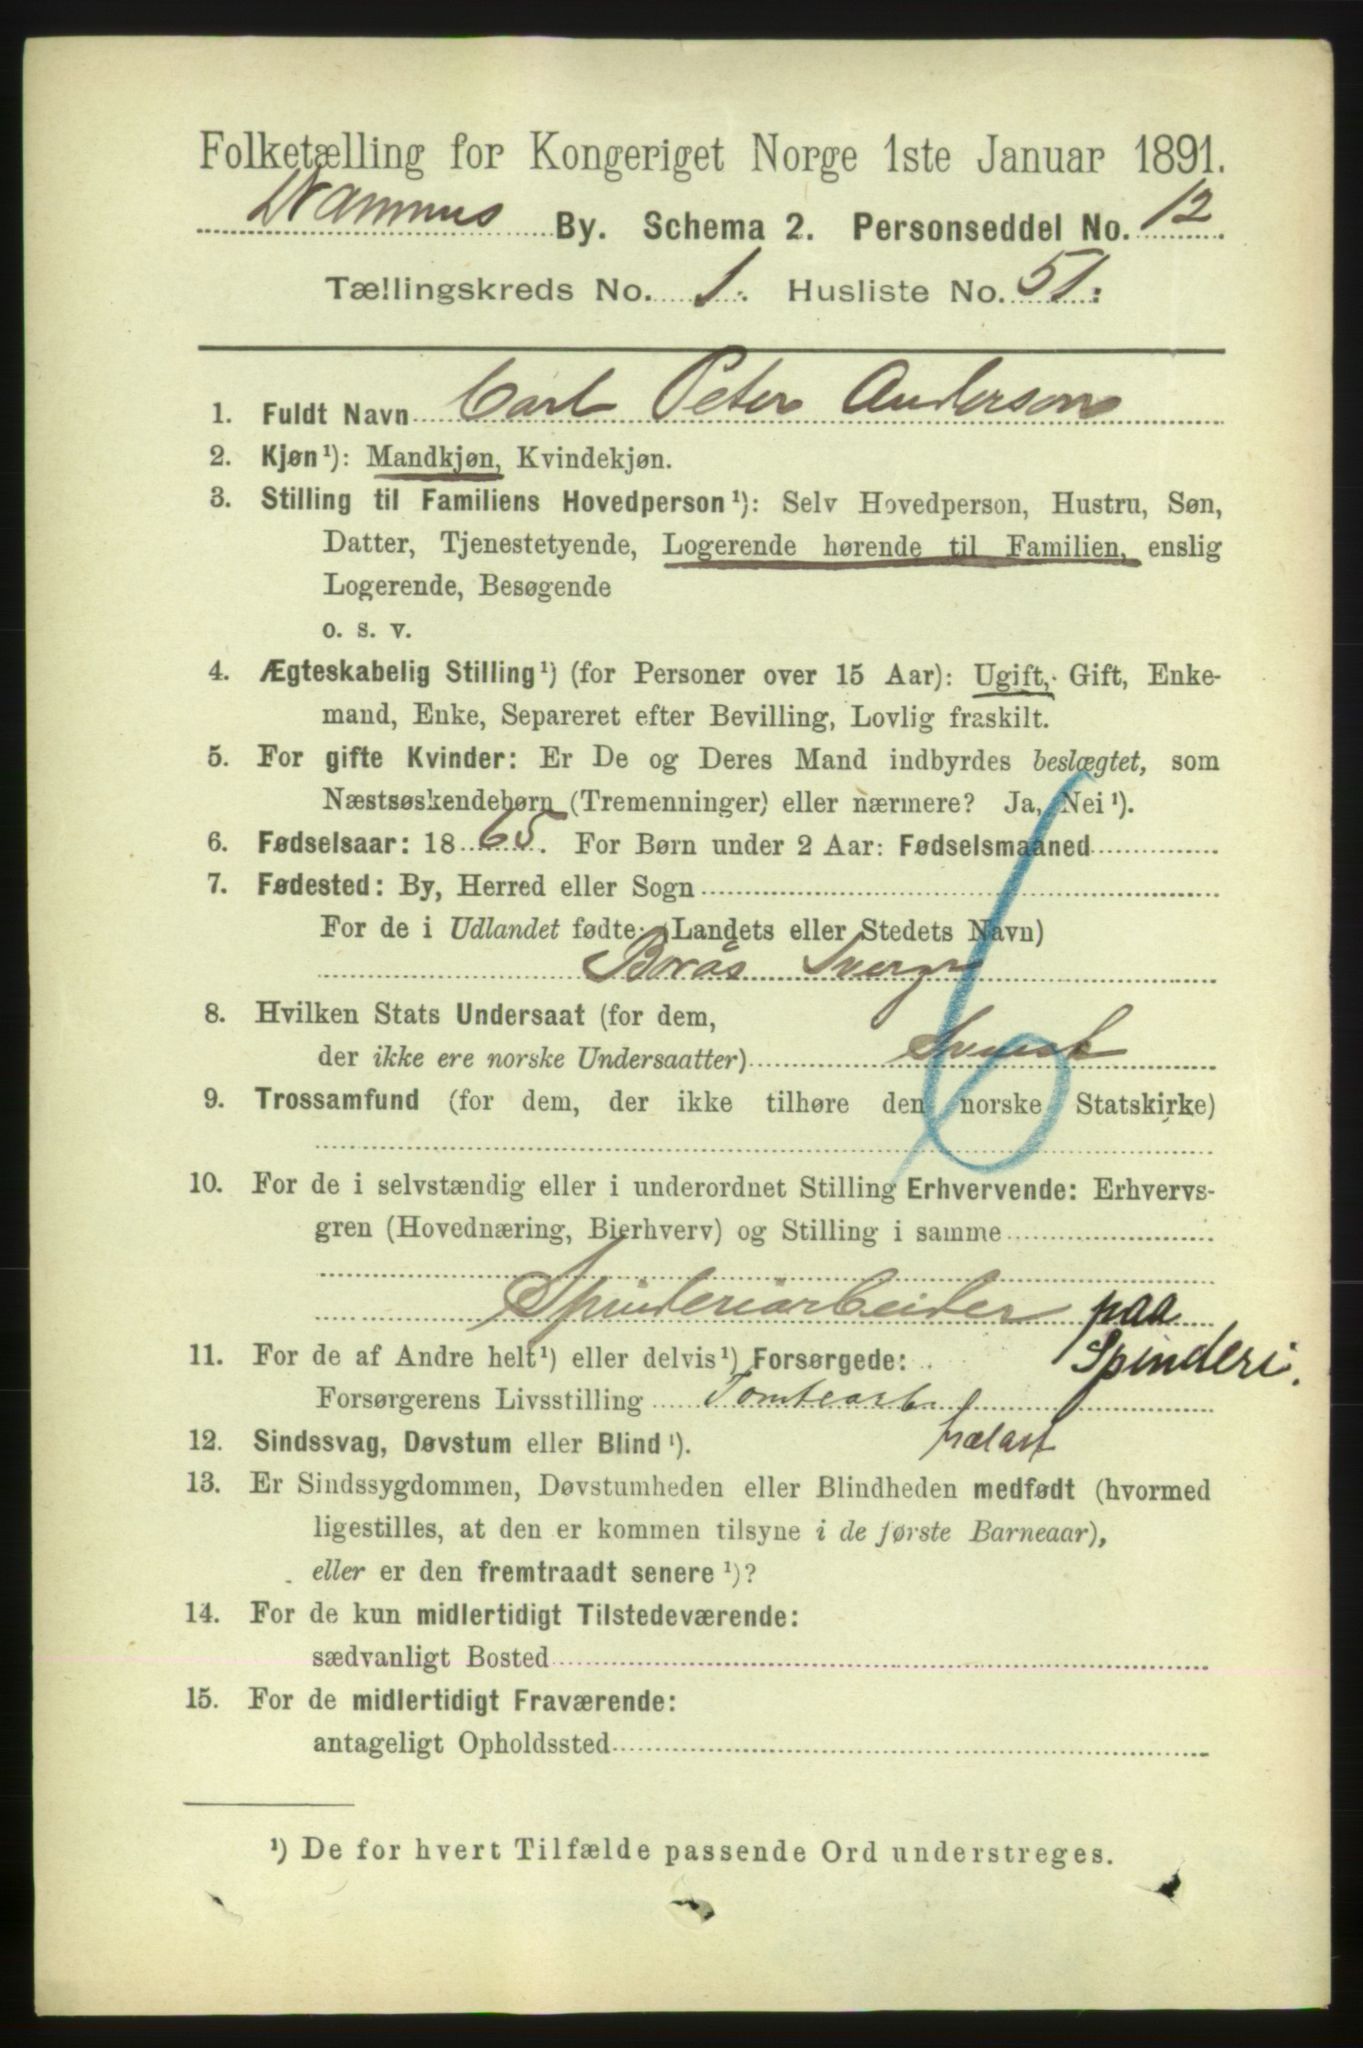 Folketælling for Kongeriget Norge 1ste Januar 1891.
Drammens By. Schema 2. Personseddel No. 12
Tællingskreds No. 1. Husliste No. 51.
1. Fuldt Navn Carl Peter Anderson
2. Kjøn¹): Mandkjøn, Kvindekjøn.
3. Stilling til Familiens Hovedperson¹): Selv Hovedperson, Hustru, Søn,
Datter, Tjenestetyende, Logerende hørende til Familien, enslig
Logerende, Besøgende
o. s. v.
4. Ægteskabelig Stilling¹) (for Personer over 15 Aar): Ugift, Gift, Enke-
mand, Enke, Separeret efter Bevilling, Lovlig fraskilt.
5. For gifte Kvinder: Er De og Deres Mand indbyrdes beslægtet, som
Næstsøskendebørn (Tremenninger) eller nærmere? Ja, Nei¹).
6. Fødselsaar: 1865. For Børn under 2 Aar: Fødselsmaaned
7. Fødested: By, Herred eller Sogn
For de i Udlandet fødte: (Landets eller Stedets Navn)
Borås Sverge
8. Hvilken Stats Undersaat (for dem,
der ikke ere norske Undersaatter) Svensk
9. Trossamfund (for dem, der ikke tilhøre den norske Statskirke)
10. For de i selvstændig eller i underordnet Stilling Erhvervende: Erhvervs-
gren (Hovednæring, Bierhverv) og Stilling i samme
Spinderiarbeider paa
Spinderi.
11. For de af Andre helt¹) eller delvis¹) Forsørgede:
Forsørgerens Livsstilling Tomtearb.
trælast
12. Sindssvag, Døvstum eller Blind¹).
13. Er Sindssygdommen, Døvstumheden eller Blindheden medfødt (hvormed
ligestilles, at den er kommen tilsyne i de første Barneaar),
eller er den fremtraadt senere¹)?
14. For de kun midlertidigt Tilstedeværende:
sædvanligt Bosted
15. For de midlertidigt Fraværende:
antageligt Opholdssted
¹) De for hvert Tilfælde passende Ord understreges.